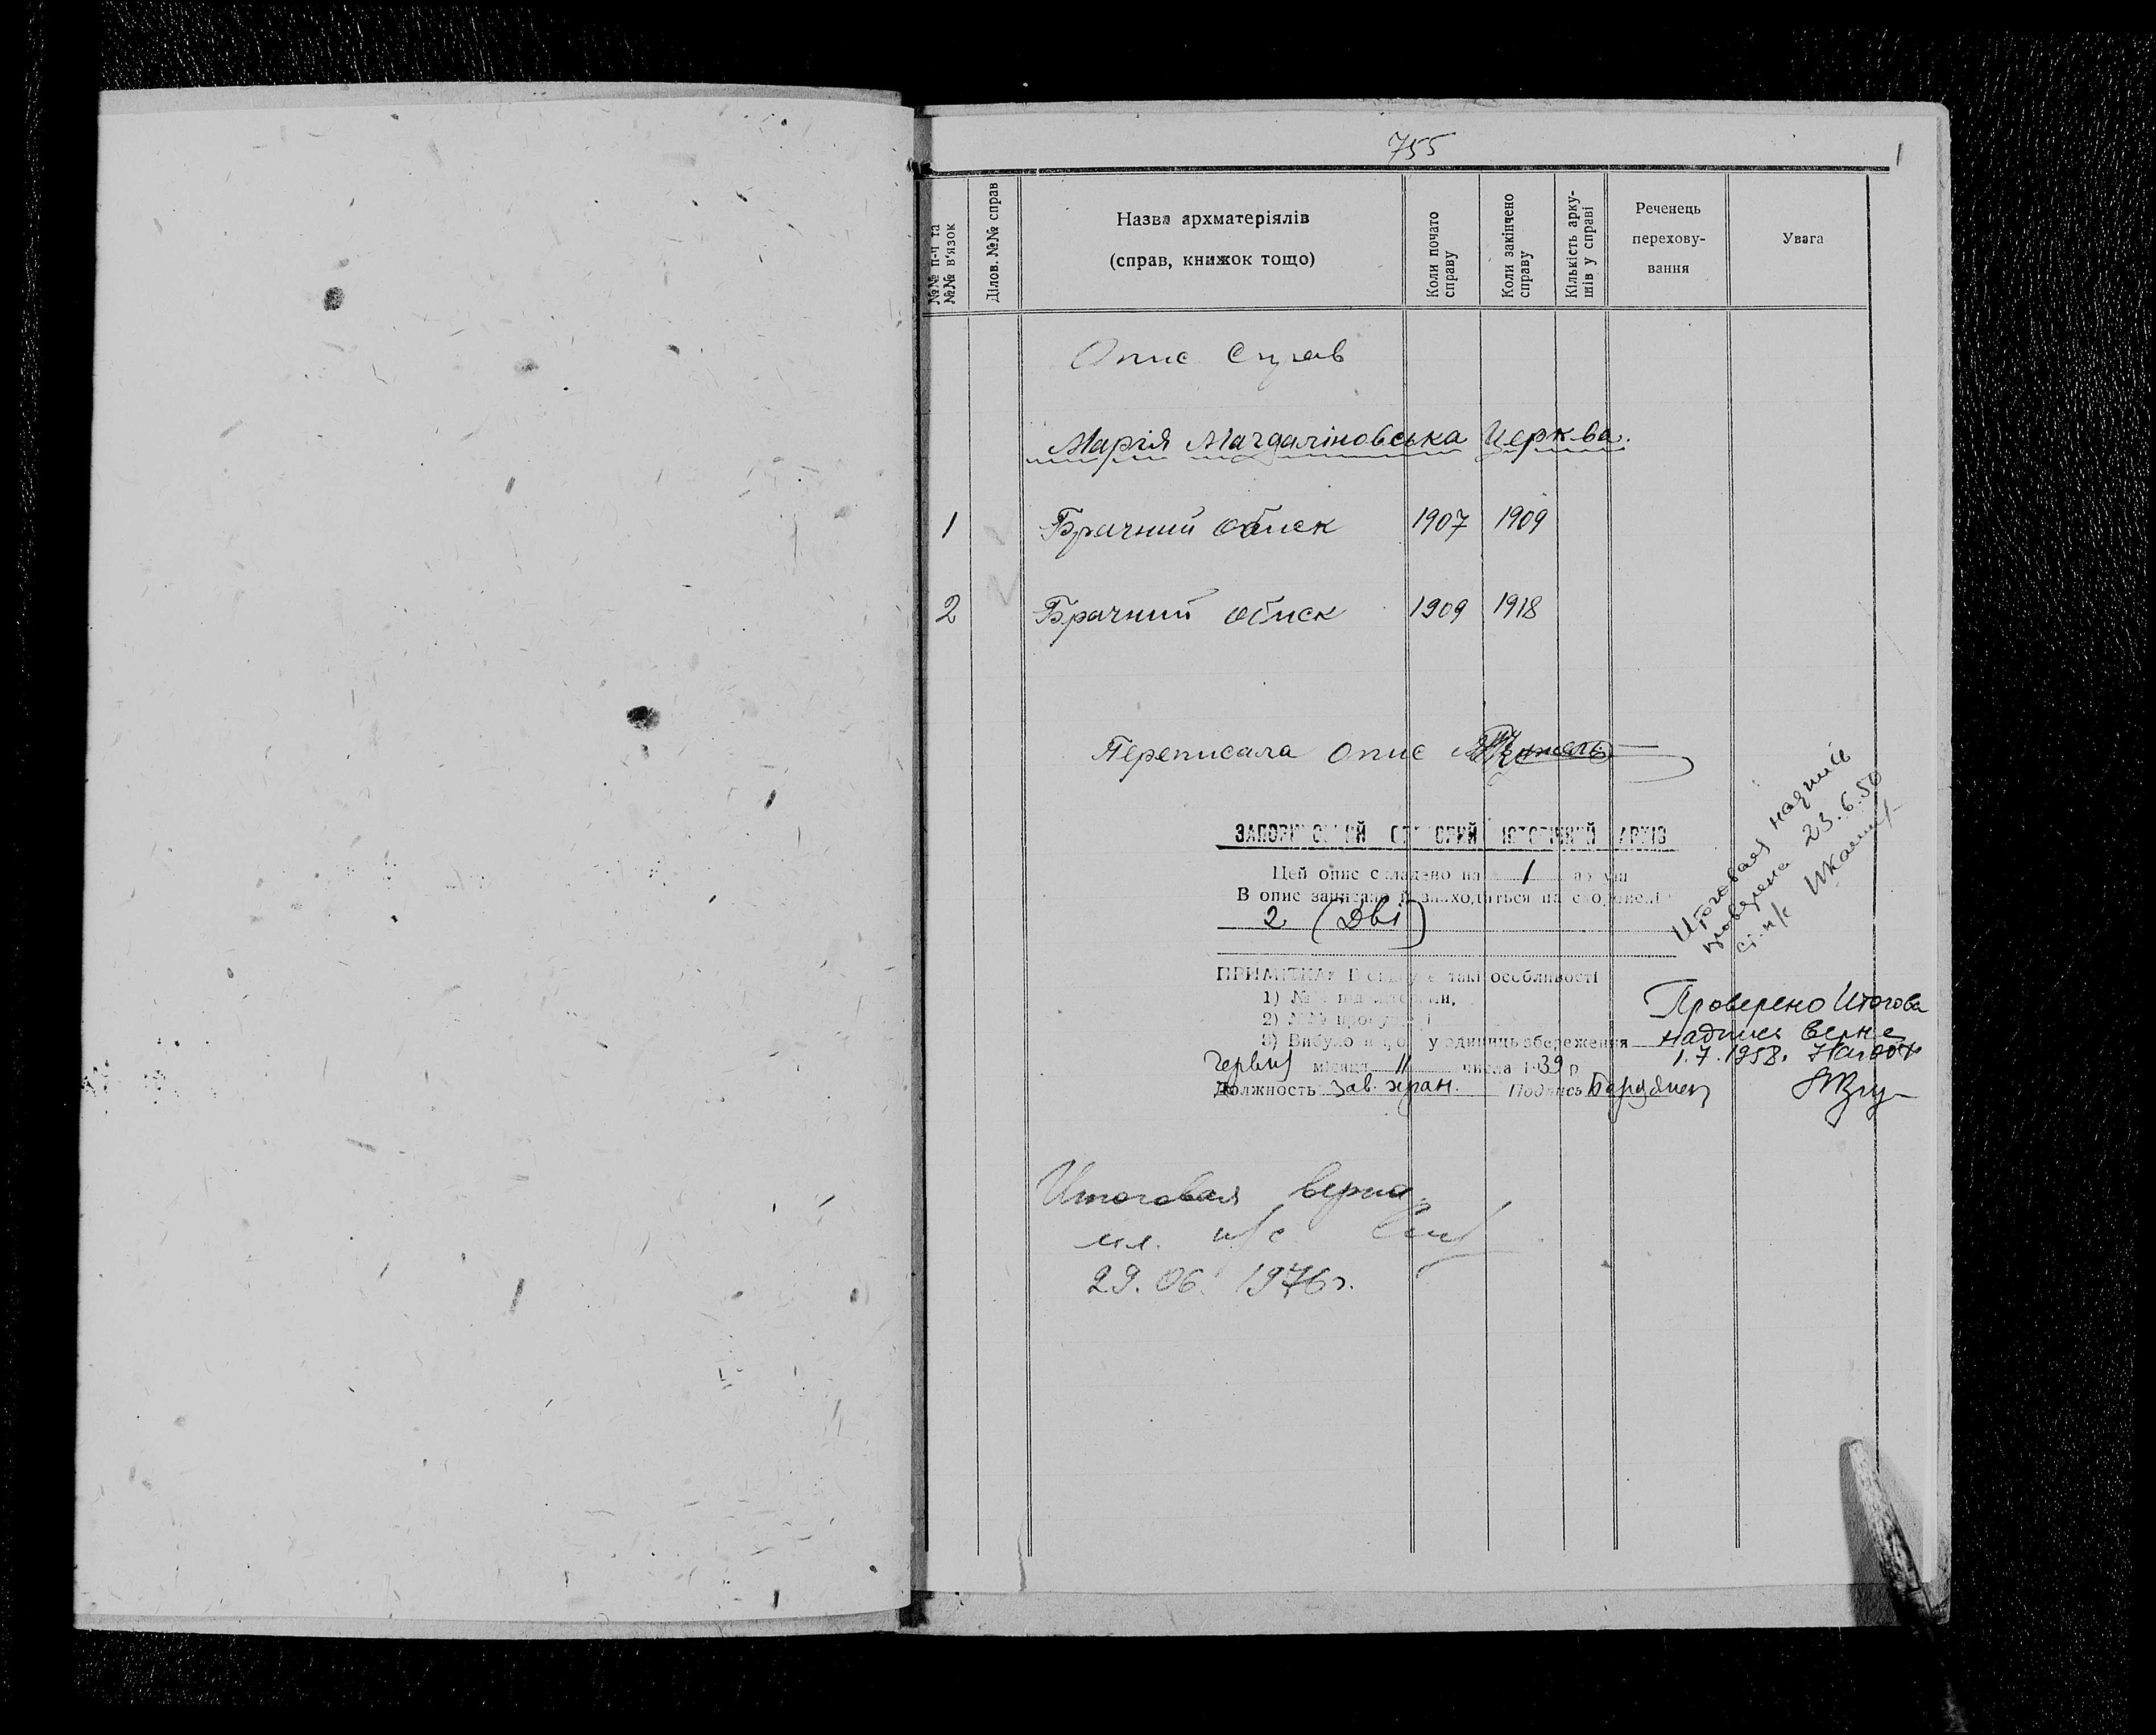 755
1
№№ п-ч та
№№ в'язок
Ділов. №№ справ
Назва архматеріялів
(справ, книжок тощо)
Коли почато
справу
Коли закінчено
справу
Кількість арку-
шів у справі
Реченець
перехову-
вання
Увага
Опис справ
Марія Магдаліновська Церква.
1 Брачний обиск 1907 1909
2 Брачний обиск 1909 1918
Переписала опис
Итоговая надпись
проверена 23.6.50
ст. н/с
ІСТОРИЧНИЙ АРХІВ
Цей опис складено на 1
В опис записано й знаходиться на
2 (Дві)
ПРИМІТКА: такі особливості
1) №№
2) №№
3) Вибуло одиниць збереження
Червня місяця 11 числа 1939 р
Должность зав. хран. Подпись
Проверено Итогова
надпись верна
1.7.1958.
Итоговая верна.
мл. н/с
29.06. 1976г.